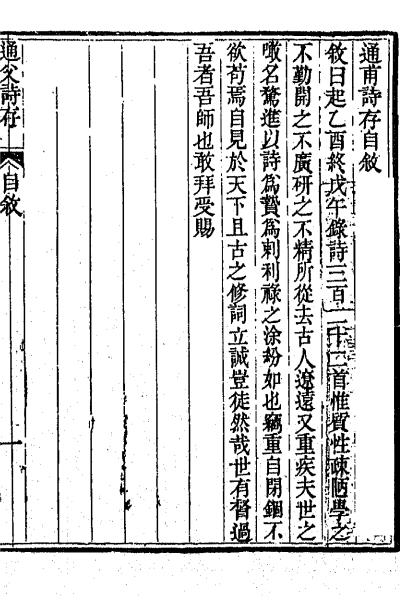 通甫詩存自敘
敘曰起乙酉終戊午錄詩三百二十六首惟質性疎陋學之
不勤開之不廣研之不精所從去古人遼遠又重疾夫世之
噉名騖進以詩爲贄爲剌利祿之涂紛如也竊重自閉錮不
欲苟焉自見於天下且古之修詞立誠豈徒然哉世有督過
吾者吾師也敢拜受賜
通父詩存
自敘
一